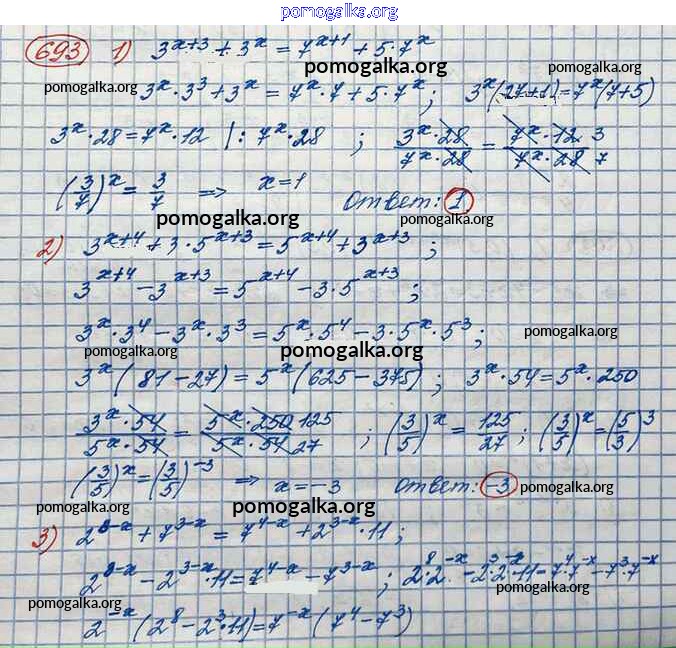 pomogalka.org
693 1) 3^{x+3} + 3^x = 7^{x+1} + 5·7^x
pomogalka.org
pomogalka.org pomogalka.org
3^x·3^3 + 3^x = 7^x·7 + 5·7^x; 3^x(27+1) = 7^x(7+5)
3^x·28 = 7^x·12 |: 7^x·28 ; \frac{3^x·28}{7^x·28} = \frac{7^x·12 3}{7^x·28 7}
(\frac{3}{7})^x = \frac{3}{7} ⇒ x=1 Ответ: 1
pomogalka.org pomogalka.org
2) 3^{x+4} + 3·5^{x+3} = 5^{x+4} + 3^{x+3};
3^{x+4} - 3^{x+3} = 5^{x+4} - 3·5^{x+3};
3^x·3^4 - 3^x·3^3 = 5^x·5^4 - 3·5^x·5^3;
pomogalka.org
pomogalka.org pomogalka.org
3^x(81-27) = 5^x(625-375); 3^x·54 = 5^x·250
\frac{3^x·54}{5^x·54} = \frac{5^x·250 125}{5^x·54 27} ; (\frac{3}{5})^x = \frac{125}{27}; (\frac{3}{5})^x = (\frac{5}{3})^3
(\frac{3}{5})^x = (\frac{3}{5})^{-3} ⇒ x=-3 Ответ: -3
pomogalka.org
pomogalka.org pomogalka.org
3) 2^{8-x} + 7^{3-x} = 7^{4-x} + 2^{3-x}·11;
2^{8-x} - 2^{3-x}·11 = 7^{4-x} - 7^{3-x}; 2^8·2^{-x} - 2^3·2^{-x}·11 = 7^4·7^{-x} - 7^3·7^{-x}
pomogalka.org pomogalka.org
2^{-x}(2^8 - 2^3·11) = 7^{-x}(7^4 - 7^3)
pomogalka.org